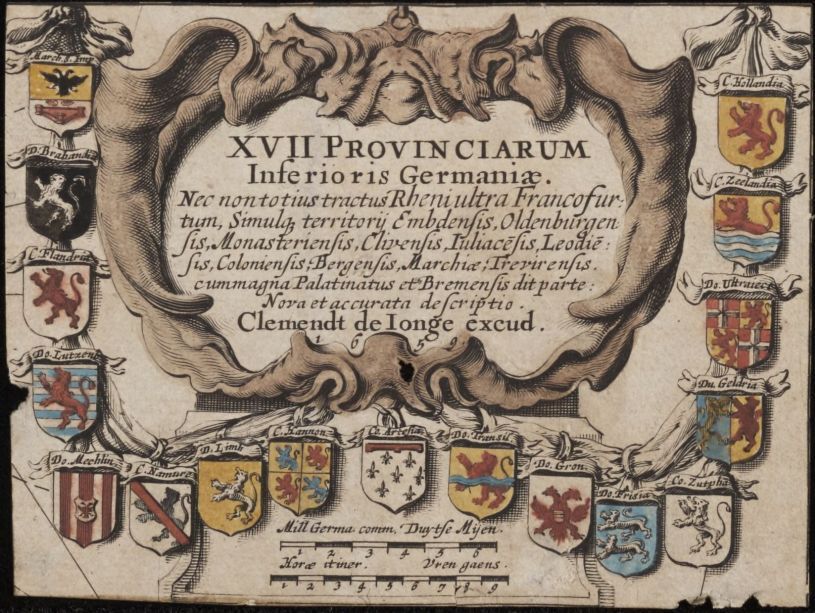 XVII PROVINCIARUM
Inferioris Germaniæ.
Nec non totius tractus Rheni ultra Francofur-
tum, Simulq territorij Embdensis, Oldenburgen
sis, Monasteriensis, Clivensis, Iuliacēsis, Leodiē:
sis, Coloniensis, Bergensis, Marchiæ, Trevirensis.
cum magna Palatinatus et Bremensis dit parte:
Nova et accurata descriptio.
Clemendt de Ionge excud.
1 6 5 9
March. S. Imp
D. Brabandia
C. Flandria
Do. Lutzenb
Do. Mechlin
C. Namurc
D. Limb
C. Hannon
Co. Artesia
Do. Transil
Do. Gron.
Do. Frisia
Co. Zutpha
Du. Geldria
Do. Ultraiect
C. Zeelandia
C. Hollandia
Mill Germa comm. Duytse Mijen.
1 2 3 4 5 6
Horæ itiner. Vren gaens.
1 2 3 4 5 6 7 8 9